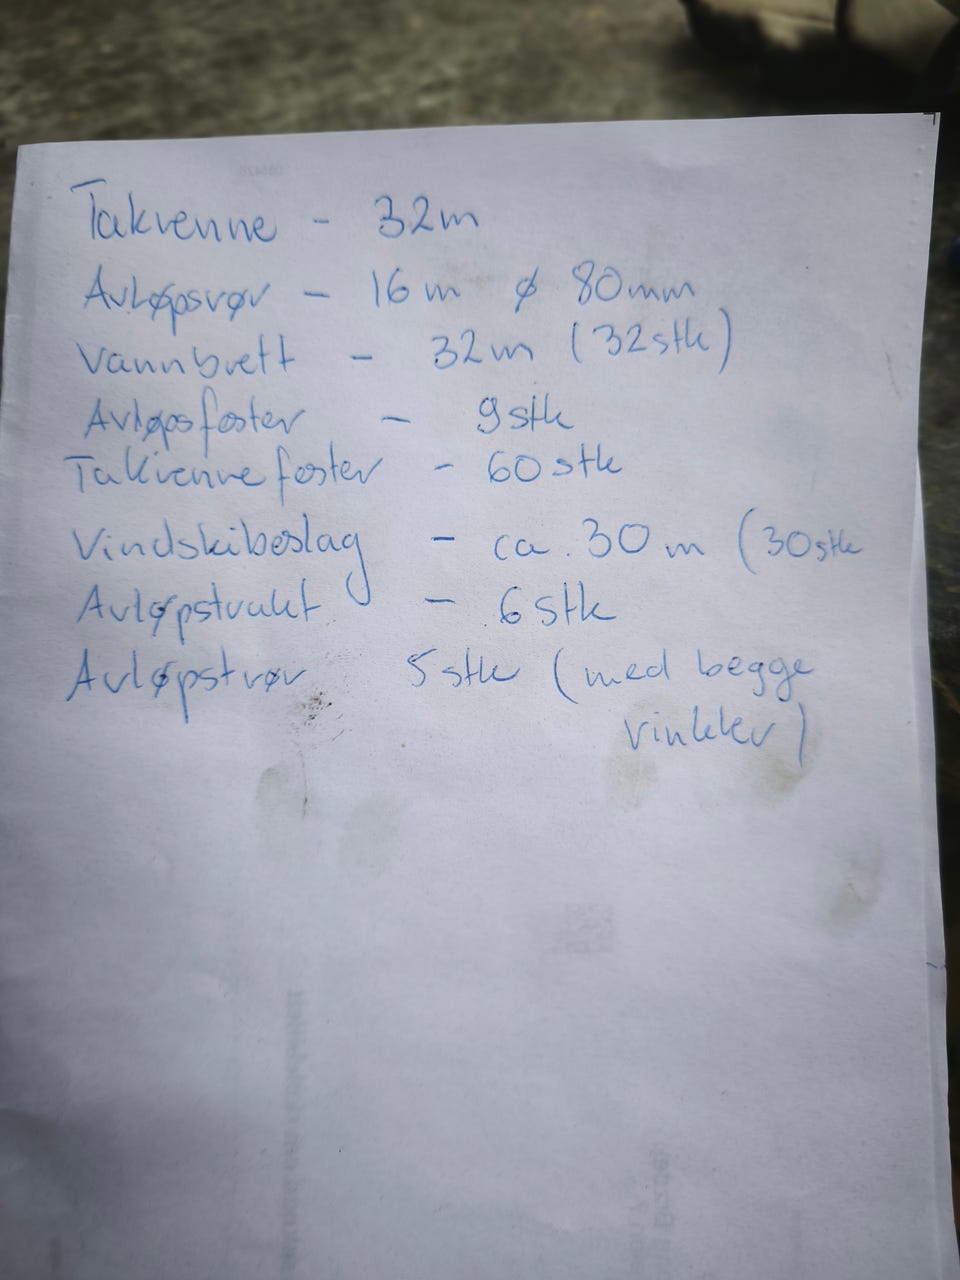 Takrenne - 32m
Avløpsrør - 16m ø 80mm
Vannbrett - 32m (32stk)
Avløpsfoster - 9stk
Takrennefoster - 60stk
Vindskibeslag - ca. 30m (30stk
Avløpstrakt - 6stk
Avløpstrør 5stk (med begge
vinkler)